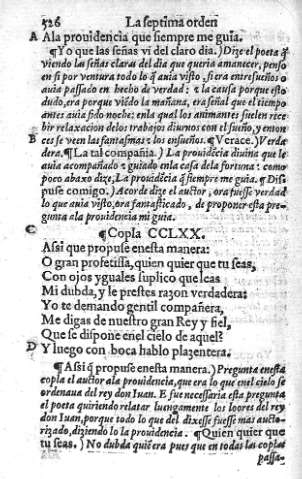 526 La septima orden
A Ala prouidencia que siempre me guia.
¶Yo que las señas vi del claro dia.) Dize el poeta q̃
viendo las señas claras del dia que queria amanecer, penso
en si por ventura todo lo q̃ auia visto, si era entresueños o
auia passado en hecho de verdad: z la causa porque esto
dudo, era porque viẽdo la mañana, era señal que el tiempo
antes auia sido noche: enla qual los animantes suelen rece
bir relaxacion delos trabajos diurnos con el sueño, y enton
B ces se veen las fantasmas z los ensueños. ¶Verace.) Verda
dera. ¶La tal compañia.) La prouidẽcia diuina que le
auia acompañado z guiado enla casa dela fortuna: como
poco abaxo dize, La prouidẽcia q̃ siempre me guia. ¶Dis
puse comigo.) Acorde dize el auctor, ora fuesse verdad
lo que auia visto, ora fantasticado, de proponer esta pre-
gunta ala prouidencia mi guia.
C ¶Copla CCLXX.
Assi que propuse enesta manera:
O gran profetissa, quien quier que tu seas,
Con ojos yguales suplico que leas
Mi dubda, y le prestes razon verdadera:
Yo te demando gentil compañera,
Me digas de nuestro gran Rey y fiel,
Que se dispone enel cielo de aquel?
D Y luego con boca hablo plazentera.
¶Assi q̃ propuse enesta manera.) Pregunta enesta
copla el auctor ala prouidencia, que era lo que enel cielo se
ordenaua del rey don Iuan. E fue necessaria esta pregunta
el poeta quiriendo relatar luengamente los loores del rey
don Iuan, porque todo lo que del dixesse fuesse mas aucto-
rizado, diziendo lo la prouidencia. ¶Quien quier que
tu seas.) No dubda quiẽ era pues que en todas las coplas
passa-